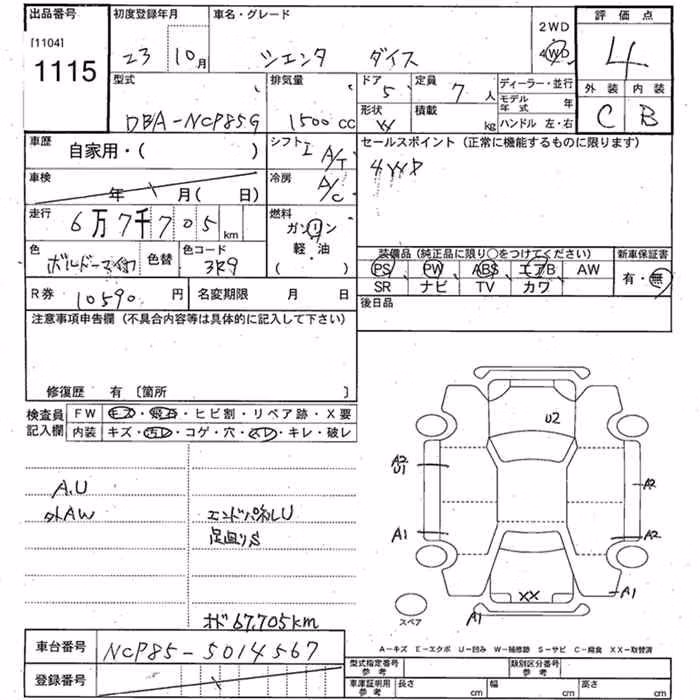 出品番号 初度登録年月 車名・グレード 2WD 評価点
[1104]
1115 23 10月 シエンタ ダイス 4WD 4
型式 排気量 ドア 定員 ディーラー・並行 外装 内装
5 7人 モデル年式 年
DBA-NCP85G 1500cc 形状 積載 kg ハンドル 左・右 C B
車歴 自家用・( ) シフト A/T セールスポイント (正常に機能するものに限ります)
4WD
車検 年 月( 日) 冷房 A/C
走行 6万7千705km 燃料 ガソリン
軽・油
( )
色 ボルドーマイカ 色替 色コード 3R9
装備品 (純正品に限り○をつけてください) 新車保証書
PS PW ABS エアB AW 有・無
SR ナビ TV カワ
R券 10590円 名変期限 月 日 後日品
注意事項申告欄 (不具合内容等は具体的に記入して下さい)
修復歴 有 〔箇所 〕
検査員 FW キズ・飛石・ヒビ割・リペア跡・X要
記入欄 内装 キズ・汚レ・コゲ・穴・スレ・キレ・破レ
A.U
外AW エンドパネルU
足廻りS
オド67,705km
U2
A2
U1
A2
A1
A2
XX
A1
A1
スペア
A-キズ E-エクボ U-凹み W-補修跡 S-サビ C-腐食 XX-取替済
車台番号 NCP85-5014567
登録番号
型式指定番号 参考 類別区分番号 参考
車庫証明用 参考 長さ cm 幅 cm 高さ cm